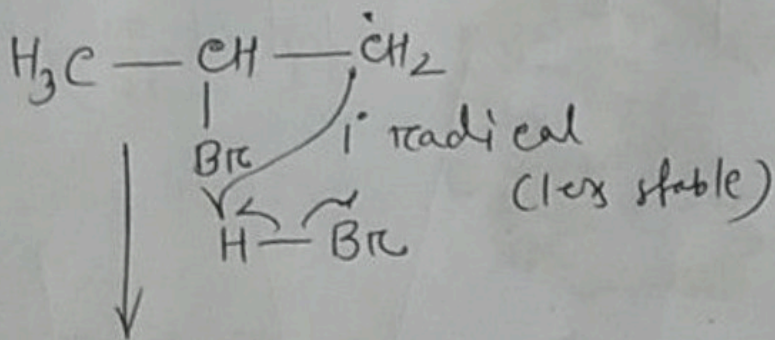 H₃C — CH — ĊH₂
Br
1° radical
(less stable)
H — Br